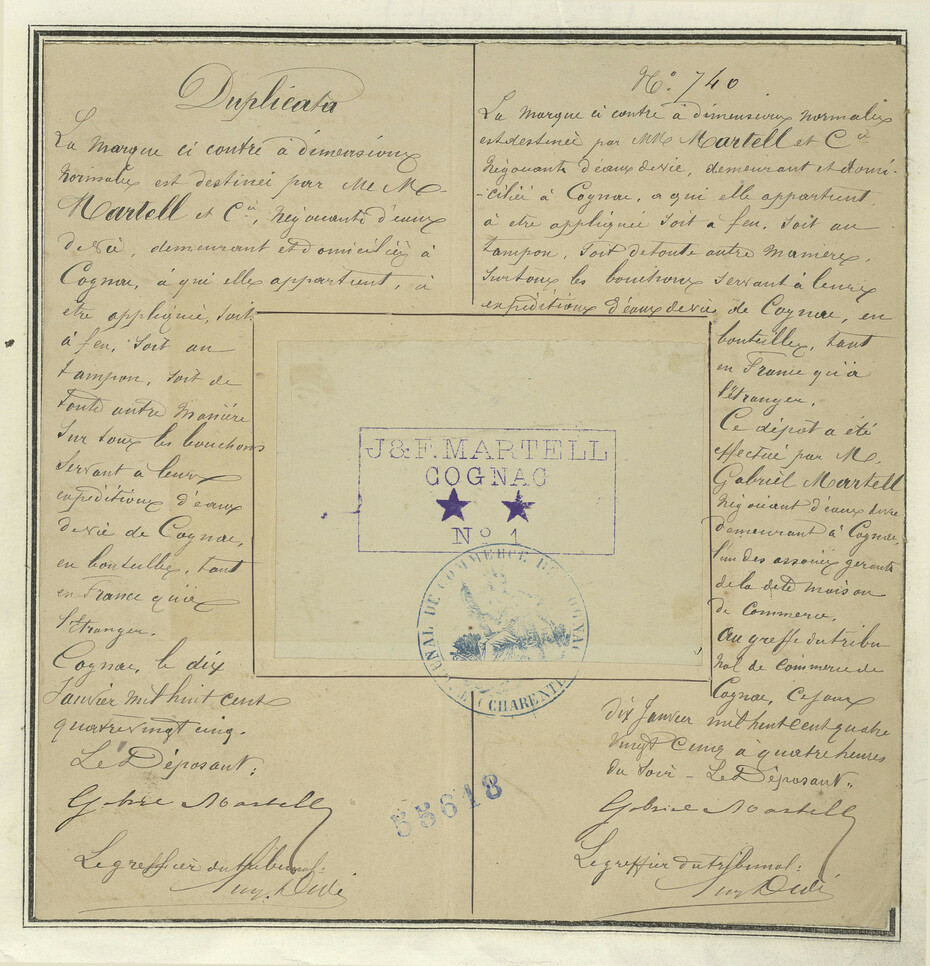 Duplicata
La marque ci contre à dimensions
normales est destinée par M. M.
Martell et Cie, Négociants d'eaux
de vie, demeurant et domiciliés à
Cognac, à qui elle appartient, à
etre appliquée, soit
à feu, soit au
tampon, soit de
toute autre manière
sur tous les bouchons
servant à leurs
expéditions d'eaux
de vie de Cognac,
en bouteilles, tant
en France qu'à
l'étranger.
Cognac, le dix
Janvier mil huit cent
quatre vingt cinq.
Le Déposant:
Gabriel Martell
Le greffier du tribunal:
No. 740
La marque ci contre à dimensions normales
est destinée par MM Martell et Cie
Négociants d'eaux de vie, demeurant et domi-
-ciliés à Cognac, a qui elle appartient,
à etre appliquée soit a feu, soit au
tampon, soit de toute autre manière,
sur tous les bouchons servant à leurs
expéditions d'eaux de vie de Cognac, en
bouteilles, tant
en France qu'à
l'étranger.
Ce dépot a été
effectué par M.
Gabriel Martell
Négociant d'eaux de vie
demeurant à Cognac,
l'un des associés gérants
de la dite maison
de Commerce.
Au greffe du tribu
nal de commerce de
Cognac, ce jour
dix Janvier mil huit cent quatre
vingt cinq à quatre heures
du soir - Le Déposant:
Gabriel Martell
Le greffier du tribunal:
J & F. MARTELL
COGNAC
★ ★
No 1
TRIBUNAL DE COMMERCE DE COGNAC
CHARENTE
55618